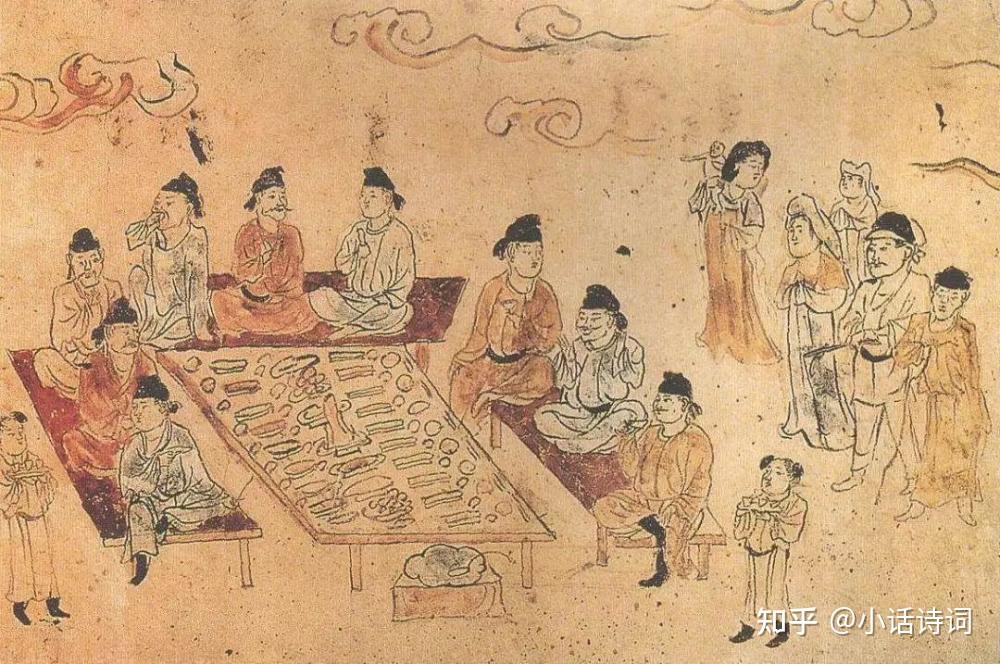 知乎 @小话诗词